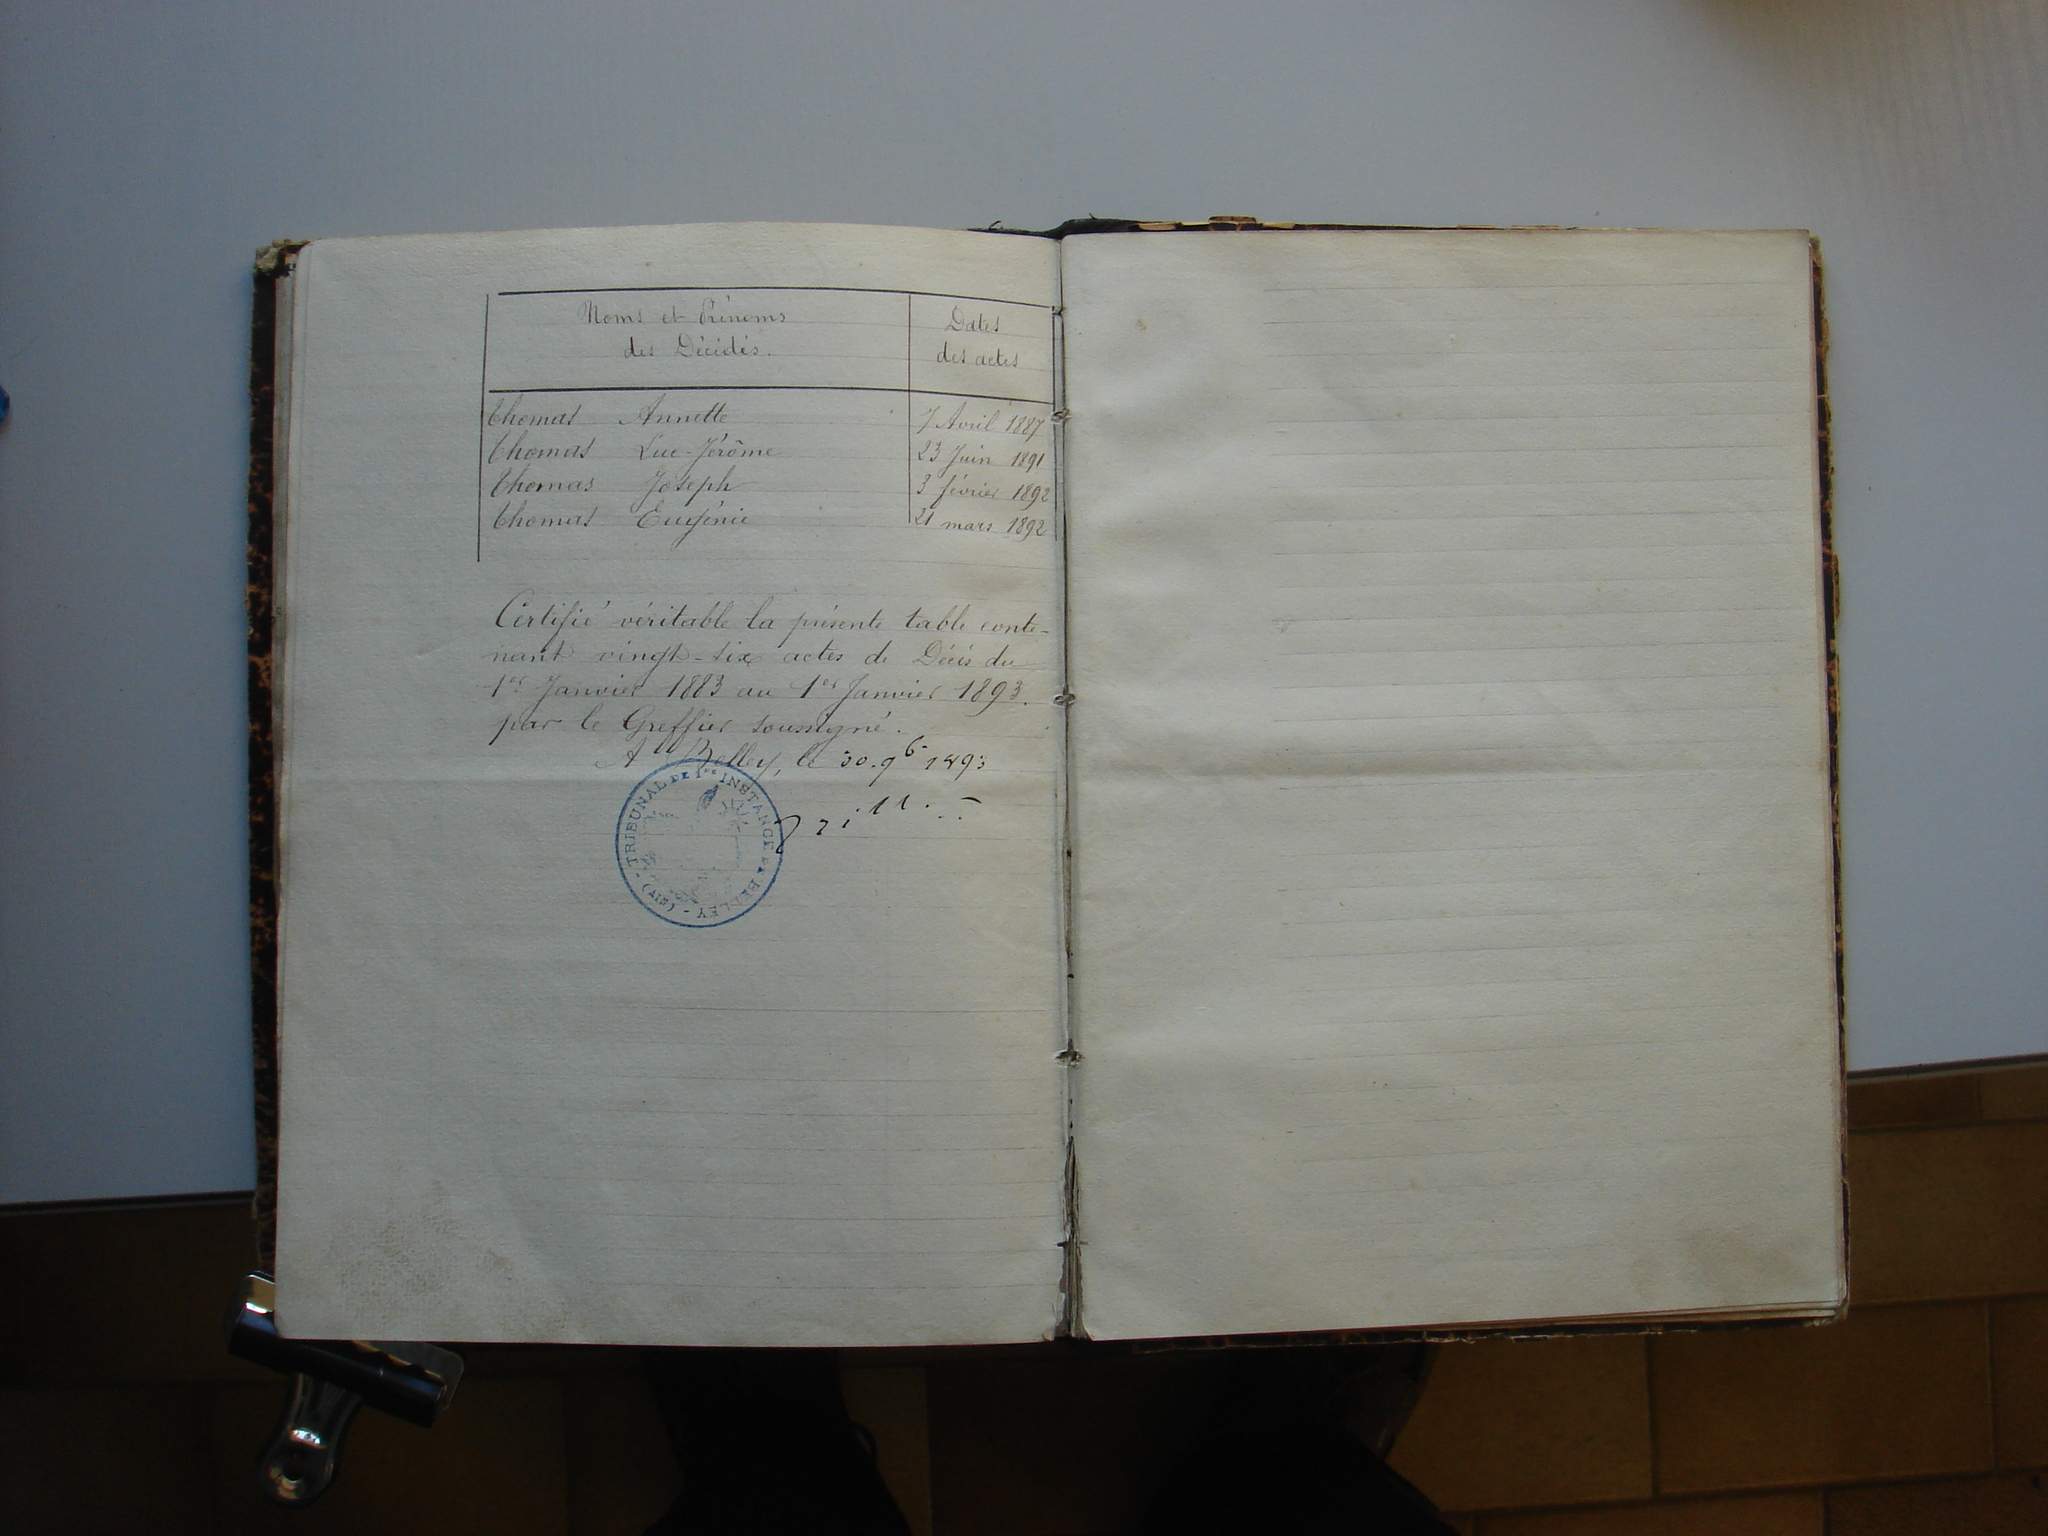 Noms et Prénoms
des Décédés.
Dates
des actes
Thomas Annette 7 Avril 1887
Thomas Luc-Jérôme 23 Juin 1891
Thomas Joseph 3 février 1892
Thomas Eugénie 21 mars 1892
Certifié véritable la présente table conte-
nant vingt-six actes de Décès du
1er Janvier 1883 au 1er Janvier 1893.
par le Greffier soussigné.
A Belley, le 30. 9b 1893
TRIBUNAL DE 1re INSTANCE DE BELLEY - (AIN) -